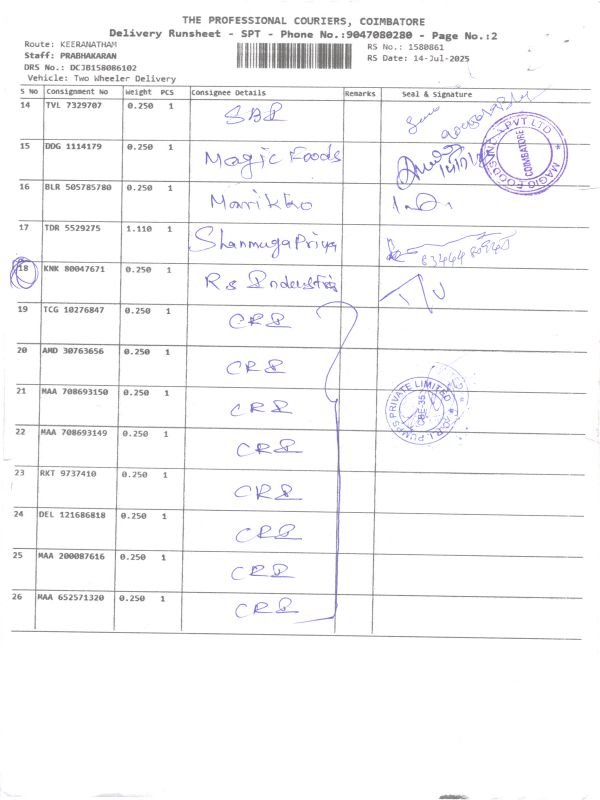 THE PROFESSIONAL COURIERS, COIMBATORE
Delivery Runsheet - SPT - Phone No.:9047080280 - Page No.:2
Route: KEERANATHAM
RS No.: 1580861
Staff: PRABHAKARAN
RS Date: 14-Jul-2025
DRS No.: DCJB158086102
Vehicle: Two Wheeler Delivery
S No Consignment No Weight PCS Consignee Details Remarks Seal & Signature
14 TVL 7329707 0.250 1 SBI
15 DDG 1114179 0.250 1 Magic Foods
MAGIC FOODS PVT LTD COIMBATORE
16 BLR 505785780 0.250 1 Marikko
17 TDR 5529275 1.110 1 Shanmuga Priya
18 KNK 80047671 0.250 1 Rs Industris
19 TCG 10276847 0.250 1 CRI
20 AMD 30763656 0.250 1 CRI
21 MAA 708693150 0.250 1 CRI
PUMPS PRIVATE LIMITED CBE-35
22 MAA 708693149 0.250 1 CRI
23 RKT 9737410 0.250 1 CRI
24 DEL 121686818 0.250 1 CRI
25 MAA 200087616 0.250 1 CRI
26 MAA 652571320 0.250 1 CRI